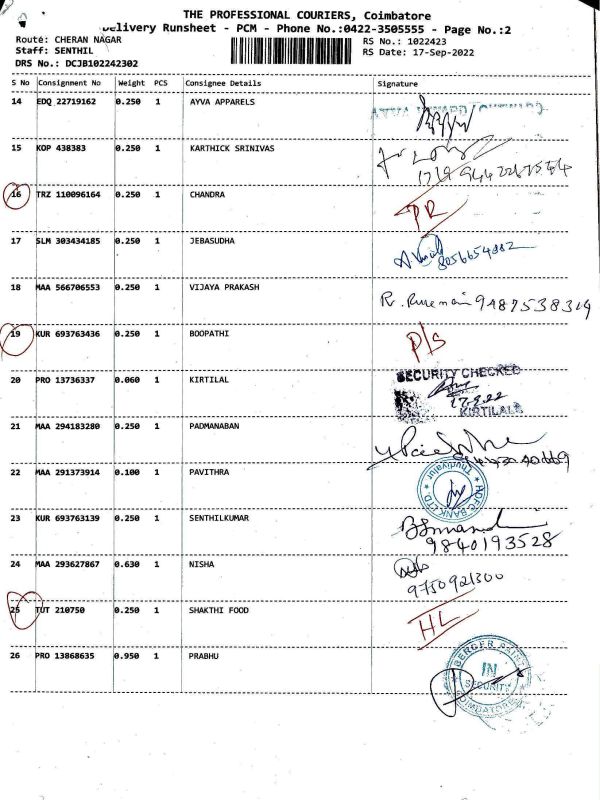 THE PROFESSIONAL COURIERS, Coimbatore
Delivery Runsheet - PCM - Phone No.:0422-3505555 - Page No.:2
Route: CHERAN NAGAR
RS No.: 1022423
Staff: SENTHIL
RS Date: 17-Sep-2022
DRS No.: DCJB102242302
S No Consignment No Weight PCS Consignee Details Signature
14 EDQ 22719162 0.250 1 AYVA APPARELS
15 KOP 438383 0.250 1 KARTHICK SRINIVAS
16 TRZ 110096164 0.250 1 CHANDRA PR
17 SLM 303434185 0.250 1 JEBASUDHA
8056654882
18 MAA 566706553 0.250 1 VIJAYA PRAKASH 9487538319
19 KUR 693763436 0.250 1 BOOPATHI P/S
20 PRO 13736337 0.060 1 KIRTILAL SECURITY CHECKED
17.9.22
KIRTILALS
21 MAA 294183280 0.250 1 PADMANABAN
22 MAA 291373914 0.100 1 PAVITHRA HDFC BANK LTD. Thudiyalur
23 KUR 693763139 0.250 1 SENTHILKUMAR
9840193528
24 MAA 293627867 0.630 1 NISHA
9750921300
25 TUT 210750 0.250 1 SHAKTHI FOOD HL
26 PRO 13868635 0.950 1 PRABHU BERGER PAINT
IN
SECURITY
COIMBATORE